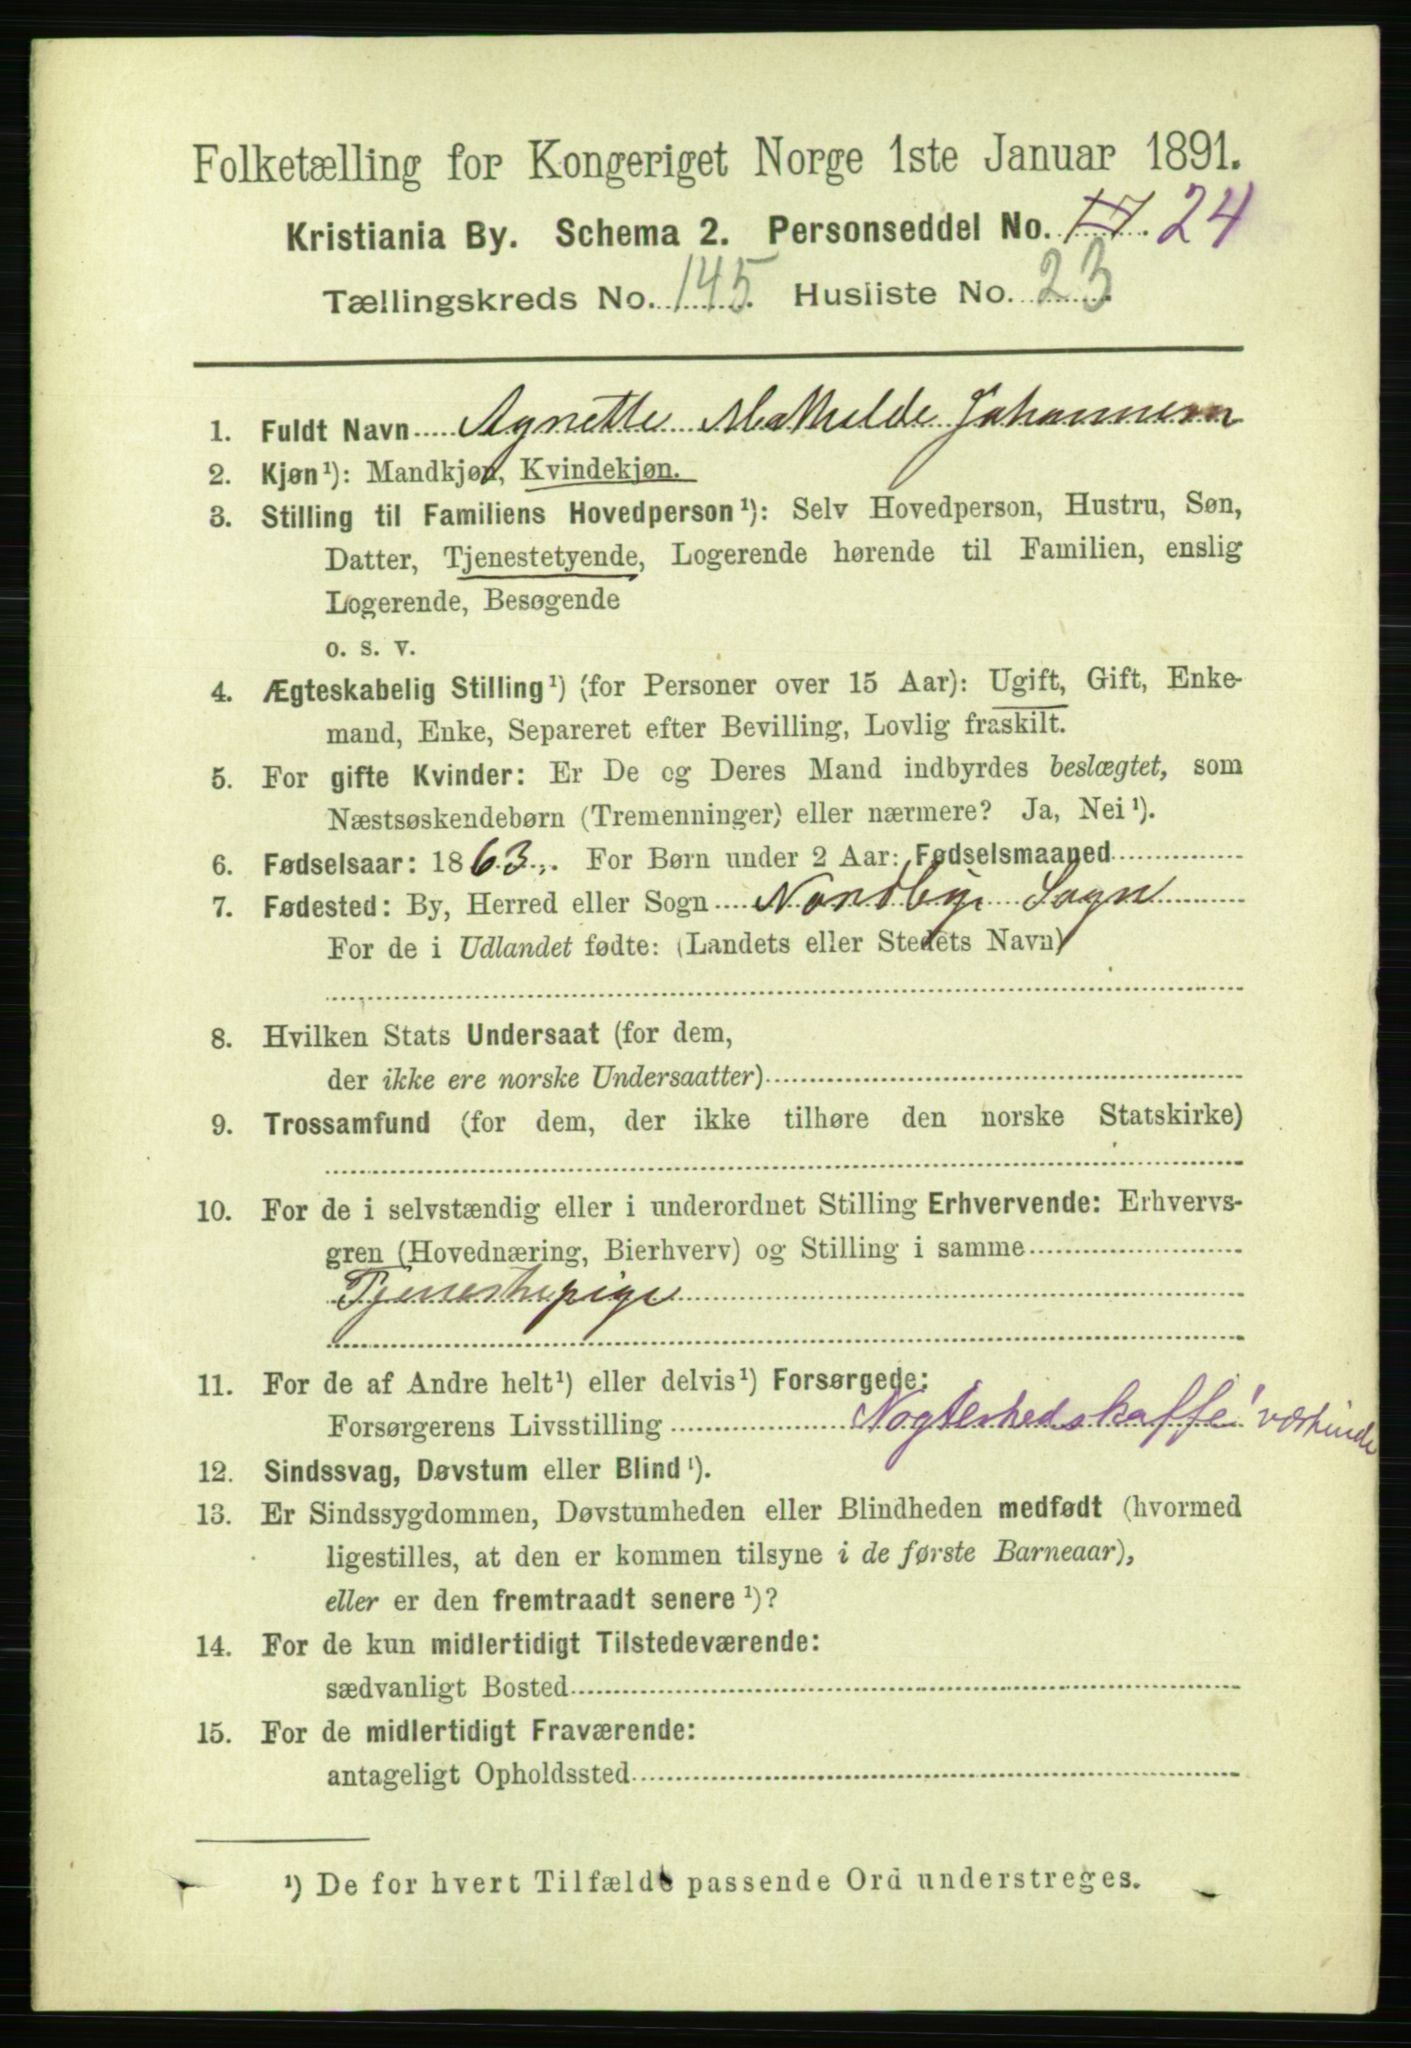 Folketælling for Kongeriget Norge 1ste Januar 1891.
Kristiania By. Schema 2. Personseddel No. 17. 24
Tællingskreds No. 145. Husliste No. 23
1. Fuldt Navn Agnette Mathilde Johannesen
2. Kjøn¹): Mandkjøn, Kvindekjøn.
3. Stilling til Familiens Hovedperson¹): Selv Hovedperson, Hustru, Søn,
Datter, Tjenestetyende, Logerende hørende til Familien, enslig
Logerende, Besøgende
o. s. v.
4. Ægteskabelig Stilling¹) (for Personer over 15 Aar): Ugift, Gift, Enke-
mand, Enke, Separeret efter Bevilling, Lovlig fraskilt.
5. For gifte Kvinder: Er De og Deres Mand indbyrdes beslægtet, som
Næstsøskendebørn (Tremenninger) eller nærmere? Ja, Nei¹).
6. Fødselsaar: 1863. For Børn under 2 Aar: Fødselsmaaned
7. Fødested: By, Herred eller Sogn Nordby Sogn
For de i Udlandet fødte: (Landets eller Stedets Navn)
8. Hvilken Stats Undersaat (for dem,
der ikke ere norske Undersaatter)
9. Trossamfund (for dem, der ikke tilhøre den norske Statskirke)
10. For de i selvstændig eller i underordnet Stilling Erhvervende: Erhvervs-
gren (Hovednæring, Bierhverv) og Stilling i samme
Tjenestepige
11. For de af Andre helt¹) eller delvis¹) Forsørgede:
Forsørgerens Livsstilling Nøgterhedskaffe' værtinde
12. Sindssvag, Døvstum eller Blind¹).
13. Er Sindssygdommen, Døvstumheden eller Blindheden medfødt (hvormed
ligestilles, at den er kommen tilsyne i de første Barneaar),
eller er den fremtraadt senere¹)?
14. For de kun midlertidigt Tilstedeværende:
sædvanligt Bosted
15. For de midlertidigt Fraværende:
antageligt Opholdssted
¹) De for hvert Tilfælde passende Ord understreges.